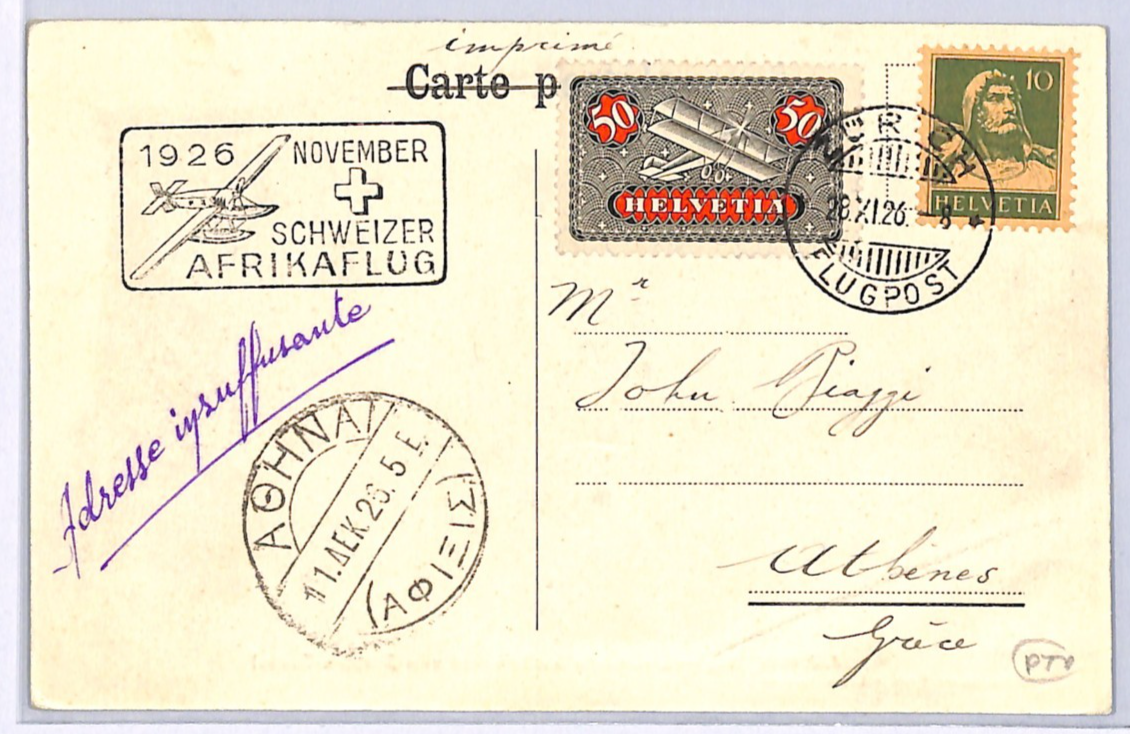 imprimé
Carte p
1926 NOVEMBER
SCHWEIZER
AFRIKAFLUG
50 50
HELVETIA
10
HELVETIA
ZÜRICH
28.XI.26.-8
FLUGPOST
Adresse insuffusante
Mr
John Piaggi
Athènes
Grèce
ΑΘΗΝΑΙ
11.ΔΕΚ.26. 5 Ε.
(ΑΦΙΞΙΣ)